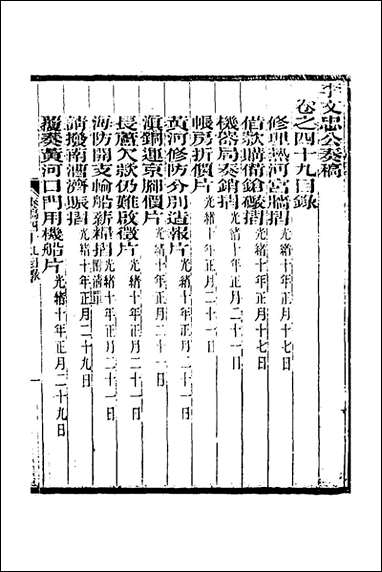 李文忠公奏稿
卷之四十九目錄
修理熱河宮牆摺光緒十年正月十七日
借款購備鎗礮摺光緒十年正月十七日
機器局奏銷摺光緒十年正月二十一日
帳房折價片光緒十年正月二十一日
黃河修防分別造報片光緒十年正月二十一日
滇銅運京腳價片光緒十年正月二十一日
長蘆欠款仍難啟徵片光緒十年正月二十一日
海防開支輪船薪糧摺附清單光緒十年正月二十一日
請撥南漕濟賑摺光緒十年正月二十九日
覆奏黃河口門用機船片光緒十年正月二十九日
奏稿四十九目錄
一